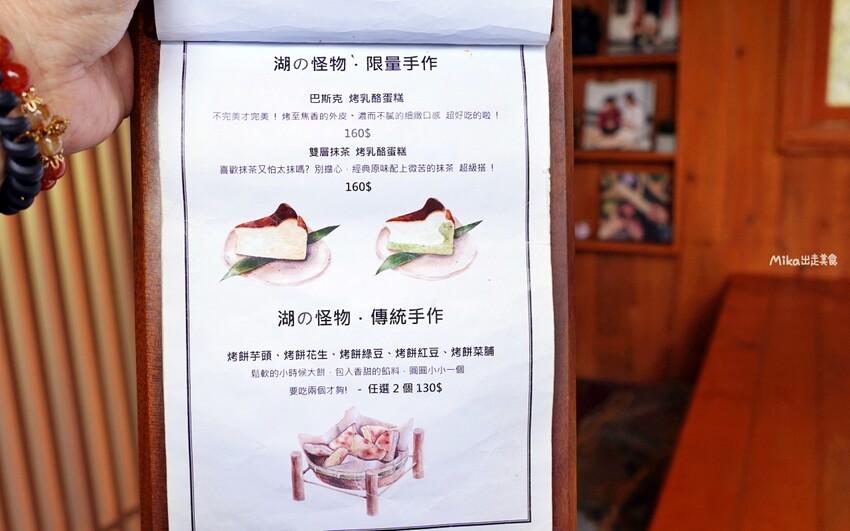 湖の怪物．限量手作
巴斯克 烤乳酪蛋糕
不完美才完美！烤至焦香的外皮、濃而不膩的細緻口感 超好吃的啦！
160$
雙層抹茶 烤乳酪蛋糕
喜歡抹茶又怕太抹嗎？別擔心，經典原味配上微苦的抹茶 超級搭！
160$
湖の怪物．傳統手作
烤餅芋頭、烤餅花生、烤餅綠豆、烤餅紅豆、烤餅菜脯
鬆軟的小時候大餅，包入香甜的餡料，圓圓小小一個
要吃兩個才夠! - 任選2個130$
Mika出走美食